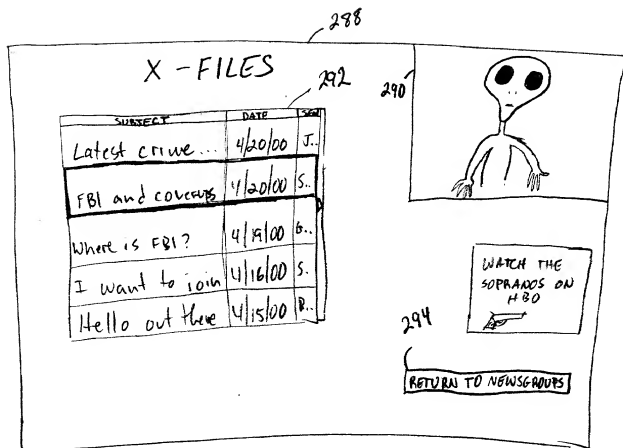 288
X - FILES
292
290
SUBJECT DATE SEN
Latest crime... 4/20/00 J..
FBI and coverups 4/20/00 S..
Where is FBI? 4/19/00 G..
I want to join 4/16/00 S.
Hello out there 4/15/00 B..
WATCH THE
SOPRANOS ON
HBO
294
RETURN TO NEWSGROUPS